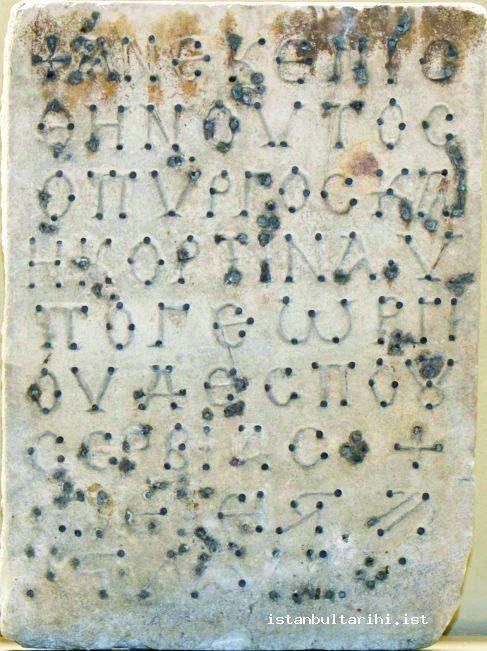 + ΑΝΕΚΕΝΙC
ΘΗΝΟVΤΟC
ΟΠVΡΓΟCΚΑ
ΗΚΟΡΤΙΝΑV
ΠΟΓΕωΡΓΙ
ΟVΔΕCΠΟV
CΕΡΒΙΑC +
istanbultarihi.ist